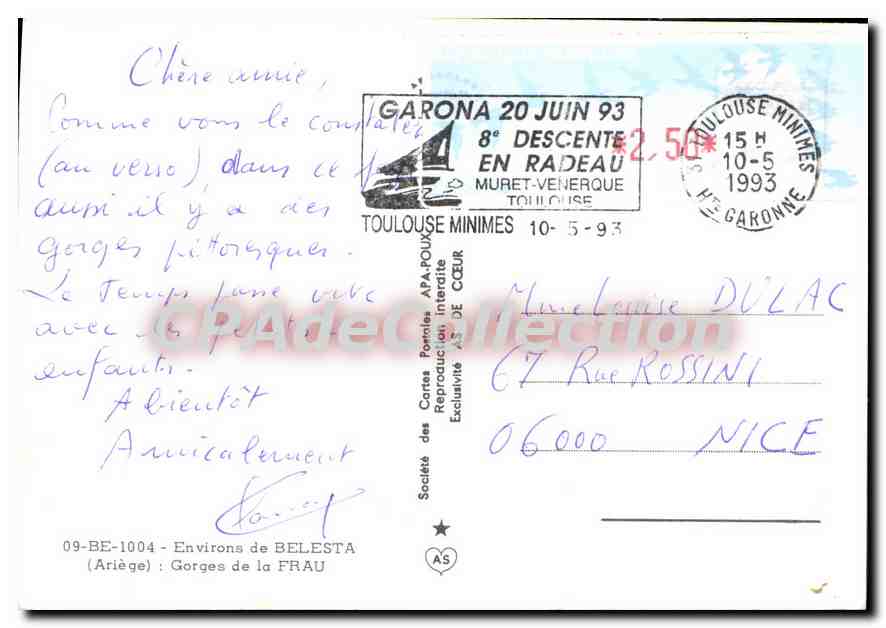 Chère amie,
Comme vous le constatez
(au verso), dans ce
aussi il y a des
gorges pittoresques.
Le Temps passe vite
avec les petits
enfants.
A bientôt
Amicalement
09-BE-1004 - Environs de BELESTA
(Ariège) : Gorges de la FRAU
GARONA 20 JUIN 93
8e DESCENTE
EN RADEAU
MURET-VENERQUE
TOULOUSE
TOULOUSE MINIMES 10-5-93
*2,50*
31 TOULOUSE MINIMES
15 H
10-5
1993
HTE GARONNE
Société des Cartes Postales APA-POUX
Reproduction interdite
Exclusivité AS DE CŒUR
AS
Mme Louise DULAC
67 Rue ROSSINI
06000 NICE
CPAdeCollection.com